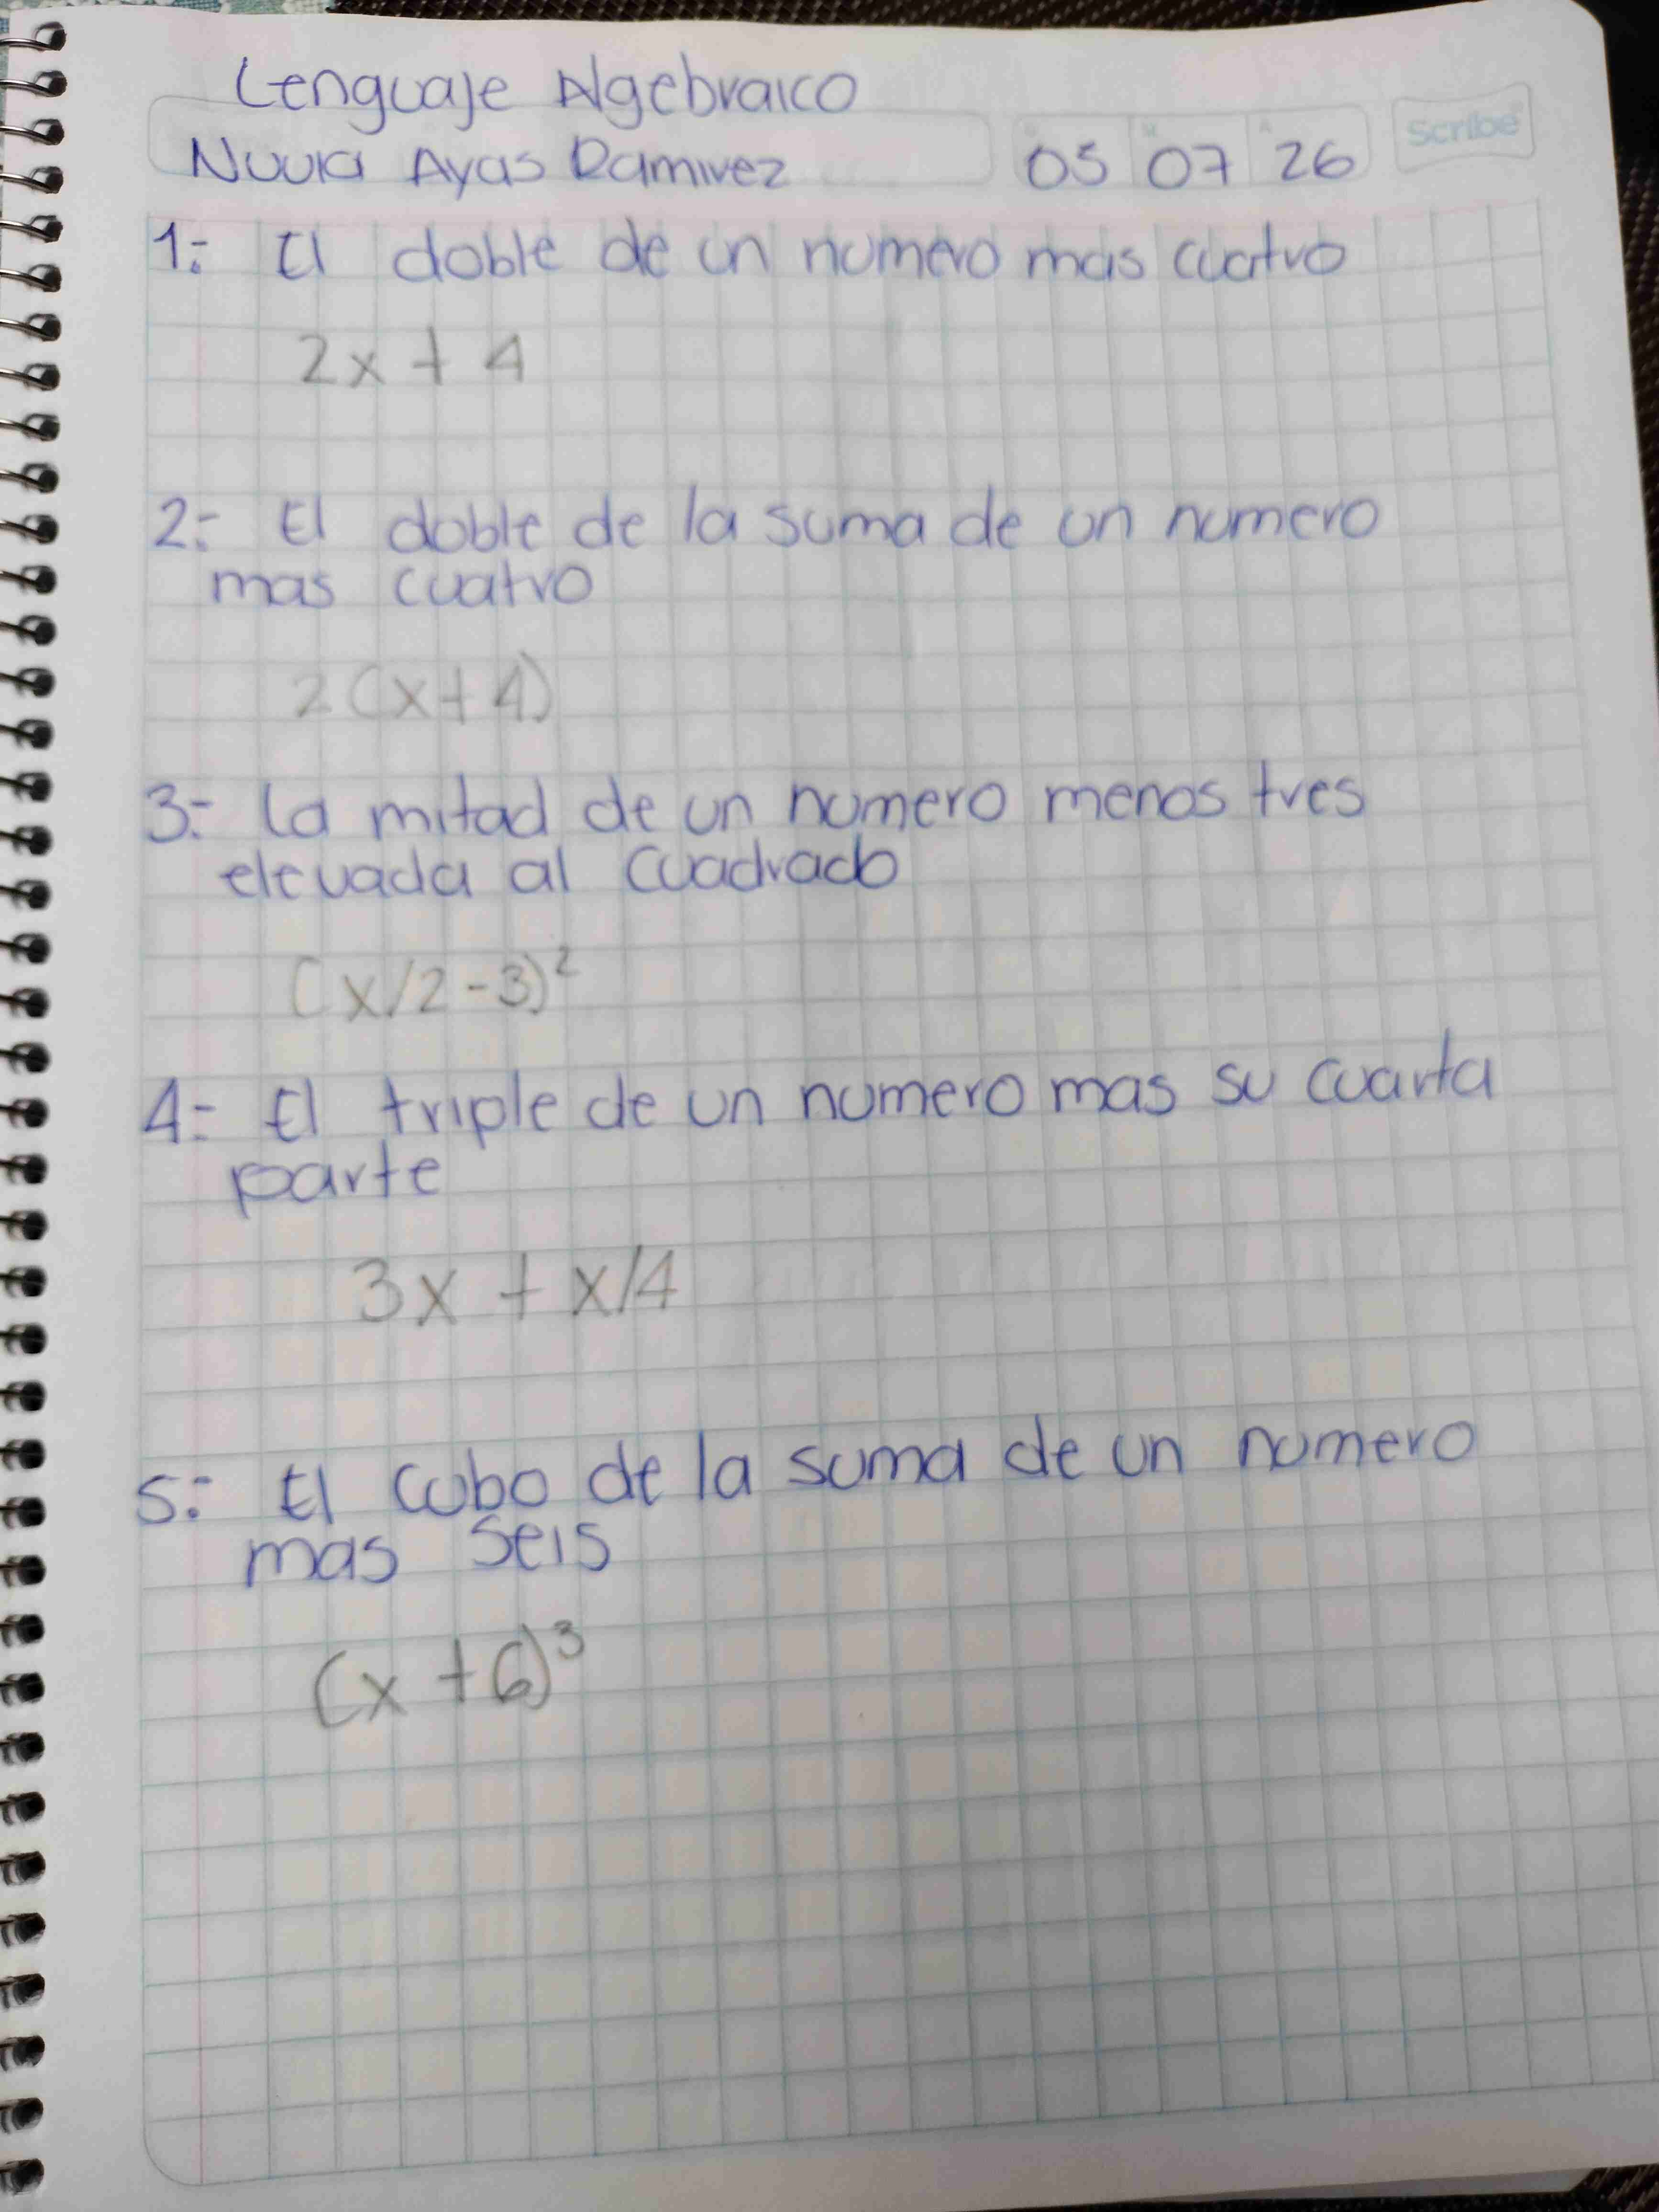 Lenguaje Algebraico
Nuvia Ayas Ramirez 05 07 26 Scribe
1.- El doble de un numero mas cuatro
2x + 4
2.- El doble de la suma de un numero
mas cuatro
2(x+4)
3.- La mitad de un numero menos tres
elevada al cuadrado
(x/2-3)²
4.- El triple de un numero mas su cuarta
parte
3x + x/4
5.- El cubo de la suma de un numero
mas seis
(x+6)³